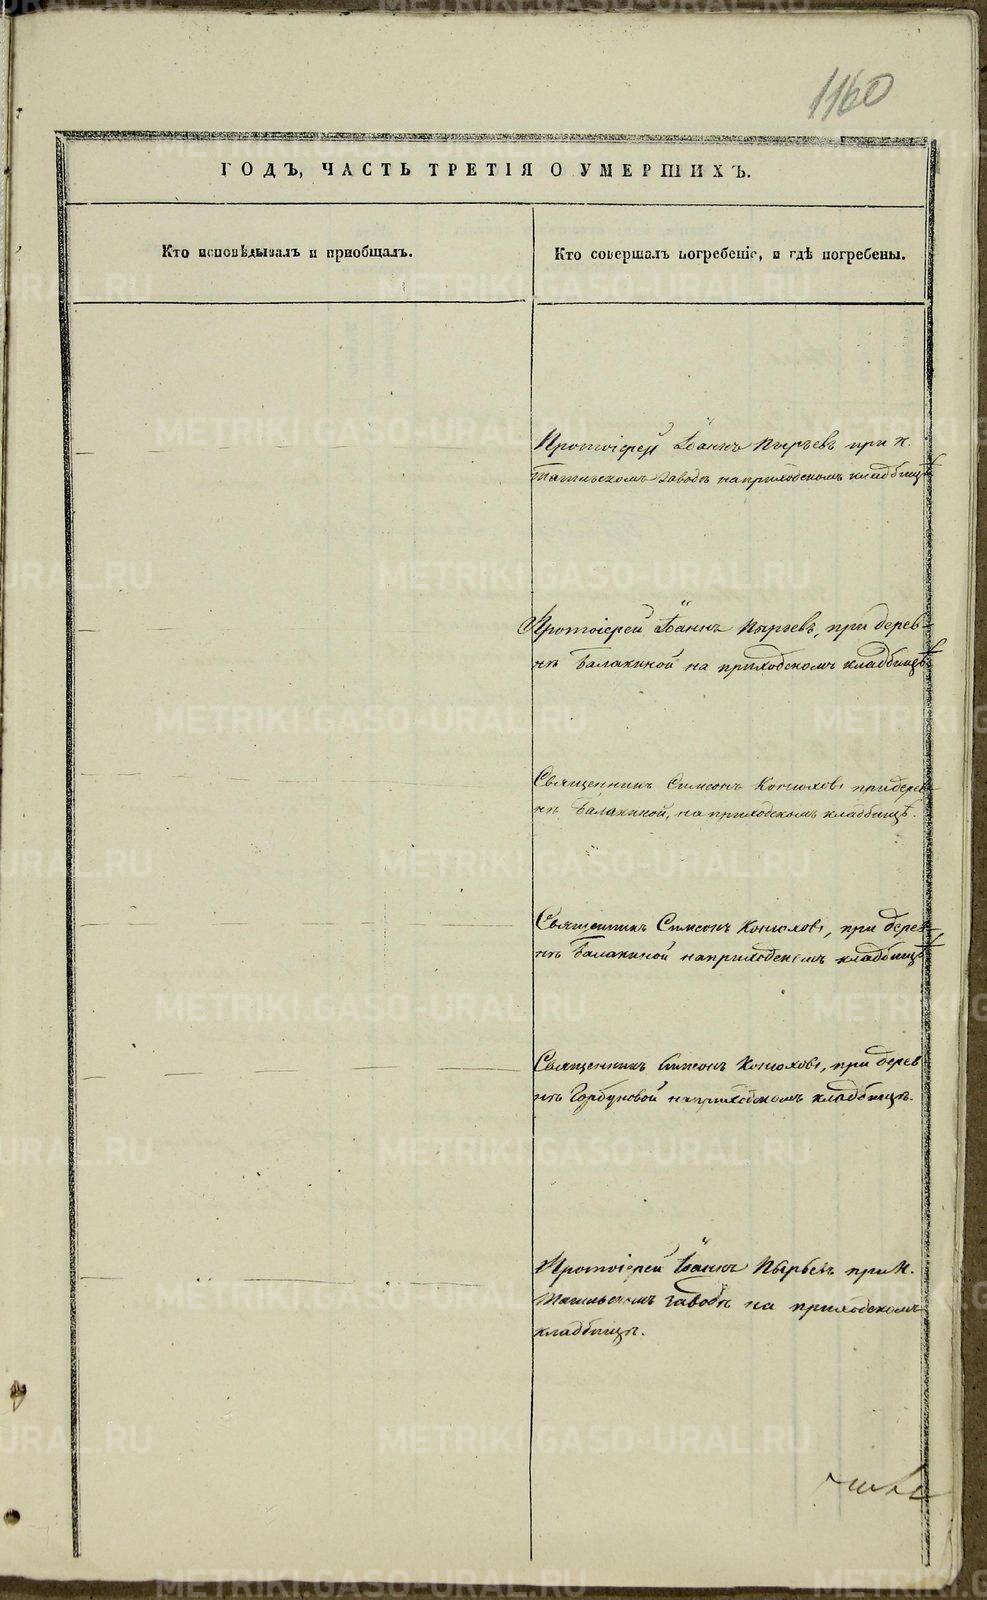 1160
ГОДЪ, ЧАСТЬ ТРЕТІЯ О УМЕРШИХЪ.
Кто исповѣдывалъ и пріобщалъ.
Кто совершалъ погребеніе, и гдѣ погребены.
Протоіерей Іоаннъ Пырьевъ при Н.
Тагильскомъ заводѣ на приходскомъ кладбищѣ
Протоіерей Іоаннъ Пырьевъ, при дерев-
нѣ Балакиной на приходскомъ кладбищѣ
Священникъ Симеонъ Конюховъ при дерев-
нѣ Балакиной, на приходскомъ кладбищѣ.
Священникъ Симеонъ Конюховъ, при дерев-
нѣ Балакиной на приходскомъ кладбищѣ
Священникъ Симеонъ Конюховъ, при дерев-
нѣ Горбуновой на приходскомъ кладбищѣ.
Протоіерей Іоаннъ Пырьевъ при Н.
Тагильскомъ заводѣ на приходскомъ
кладбищѣ.
METRIKI.GASO-URAL.RU